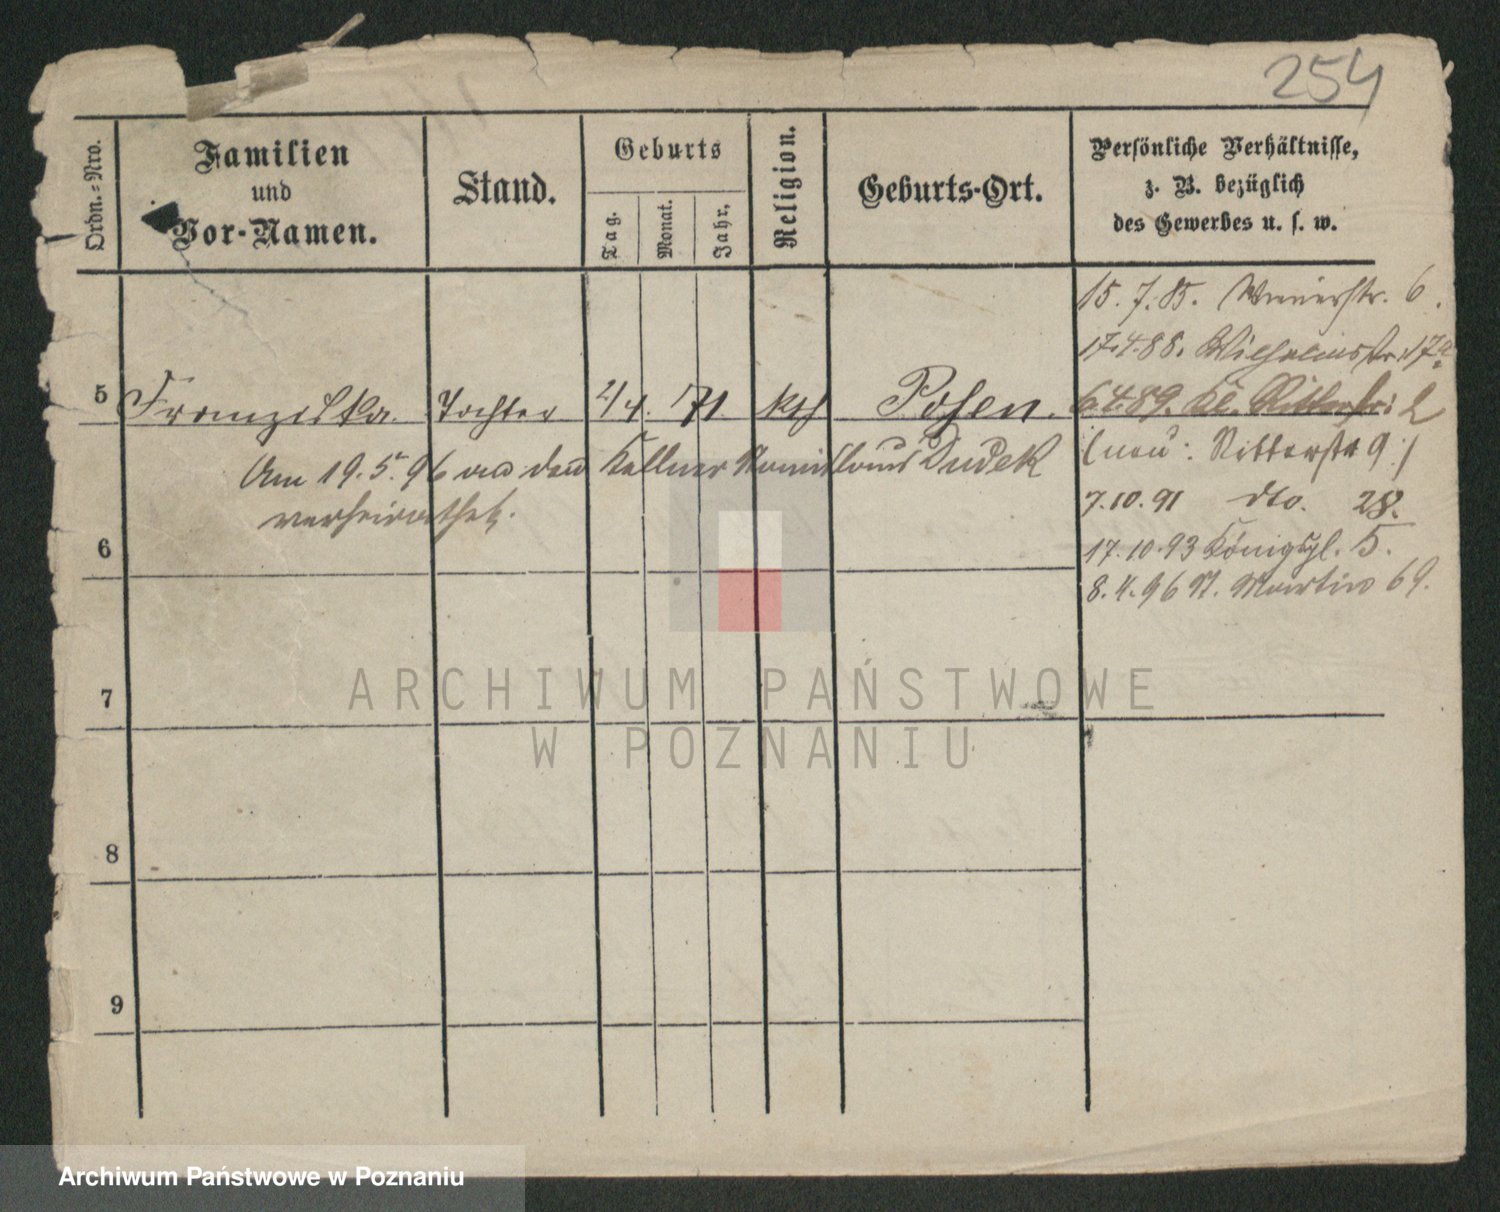 254
Ordn.-Nro.
Familien
und
Vor-Namen.
Stand.
Geburts
Tag.
Monat.
Jahr.
Religion.
Geburts-Ort.
Persönliche Verhältnisse,
z. B. bezüglich
des Gewerbes u. s. w.
15. 7. 85. Wienerstr. 6.
17.4.88. Wilhelmstr. 17a
5 Franziska. Tochter 4. 71. kth Posen.
6.4.89. Kl. Ritterstr. 2
(neu: Ritterstr 9.)
Am 19.5.96 an den Kellner Dudek
verheirathet.
7.10.91 dto. 28.
17.10.93 Königspl. 5.
8.4.96 St. Martin 69.
6
7
8
9
ARCHIWUM PAŃSTWOWE
W POZNANIU
Archiwum Państwowe w Poznaniu